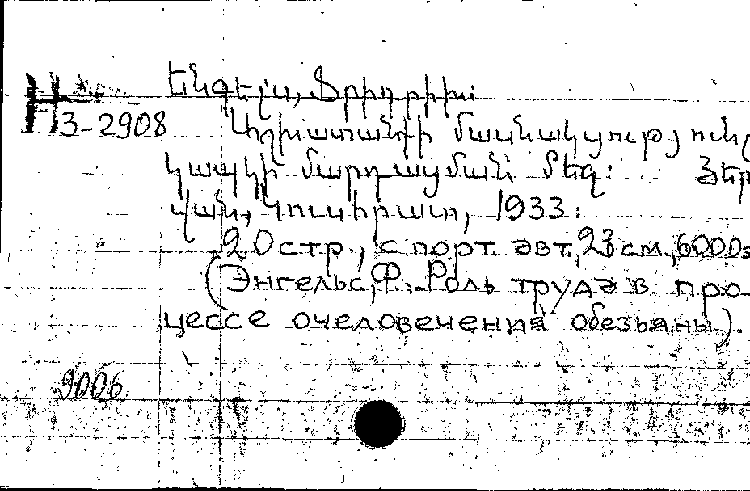 Էնգելս, Ֆրիդրիխ:
Н
3-2908 Աշխատանքի մասնակցությունը
կապկի մարդացման մեջ: Յեր
վան, Կուսհրատ, 1933:
20 стр., с порт. авт., 23 см., 6000 э
(Энгельс, Ф. Роль труда в про-
цессе очеловечения обезьяны).
9006